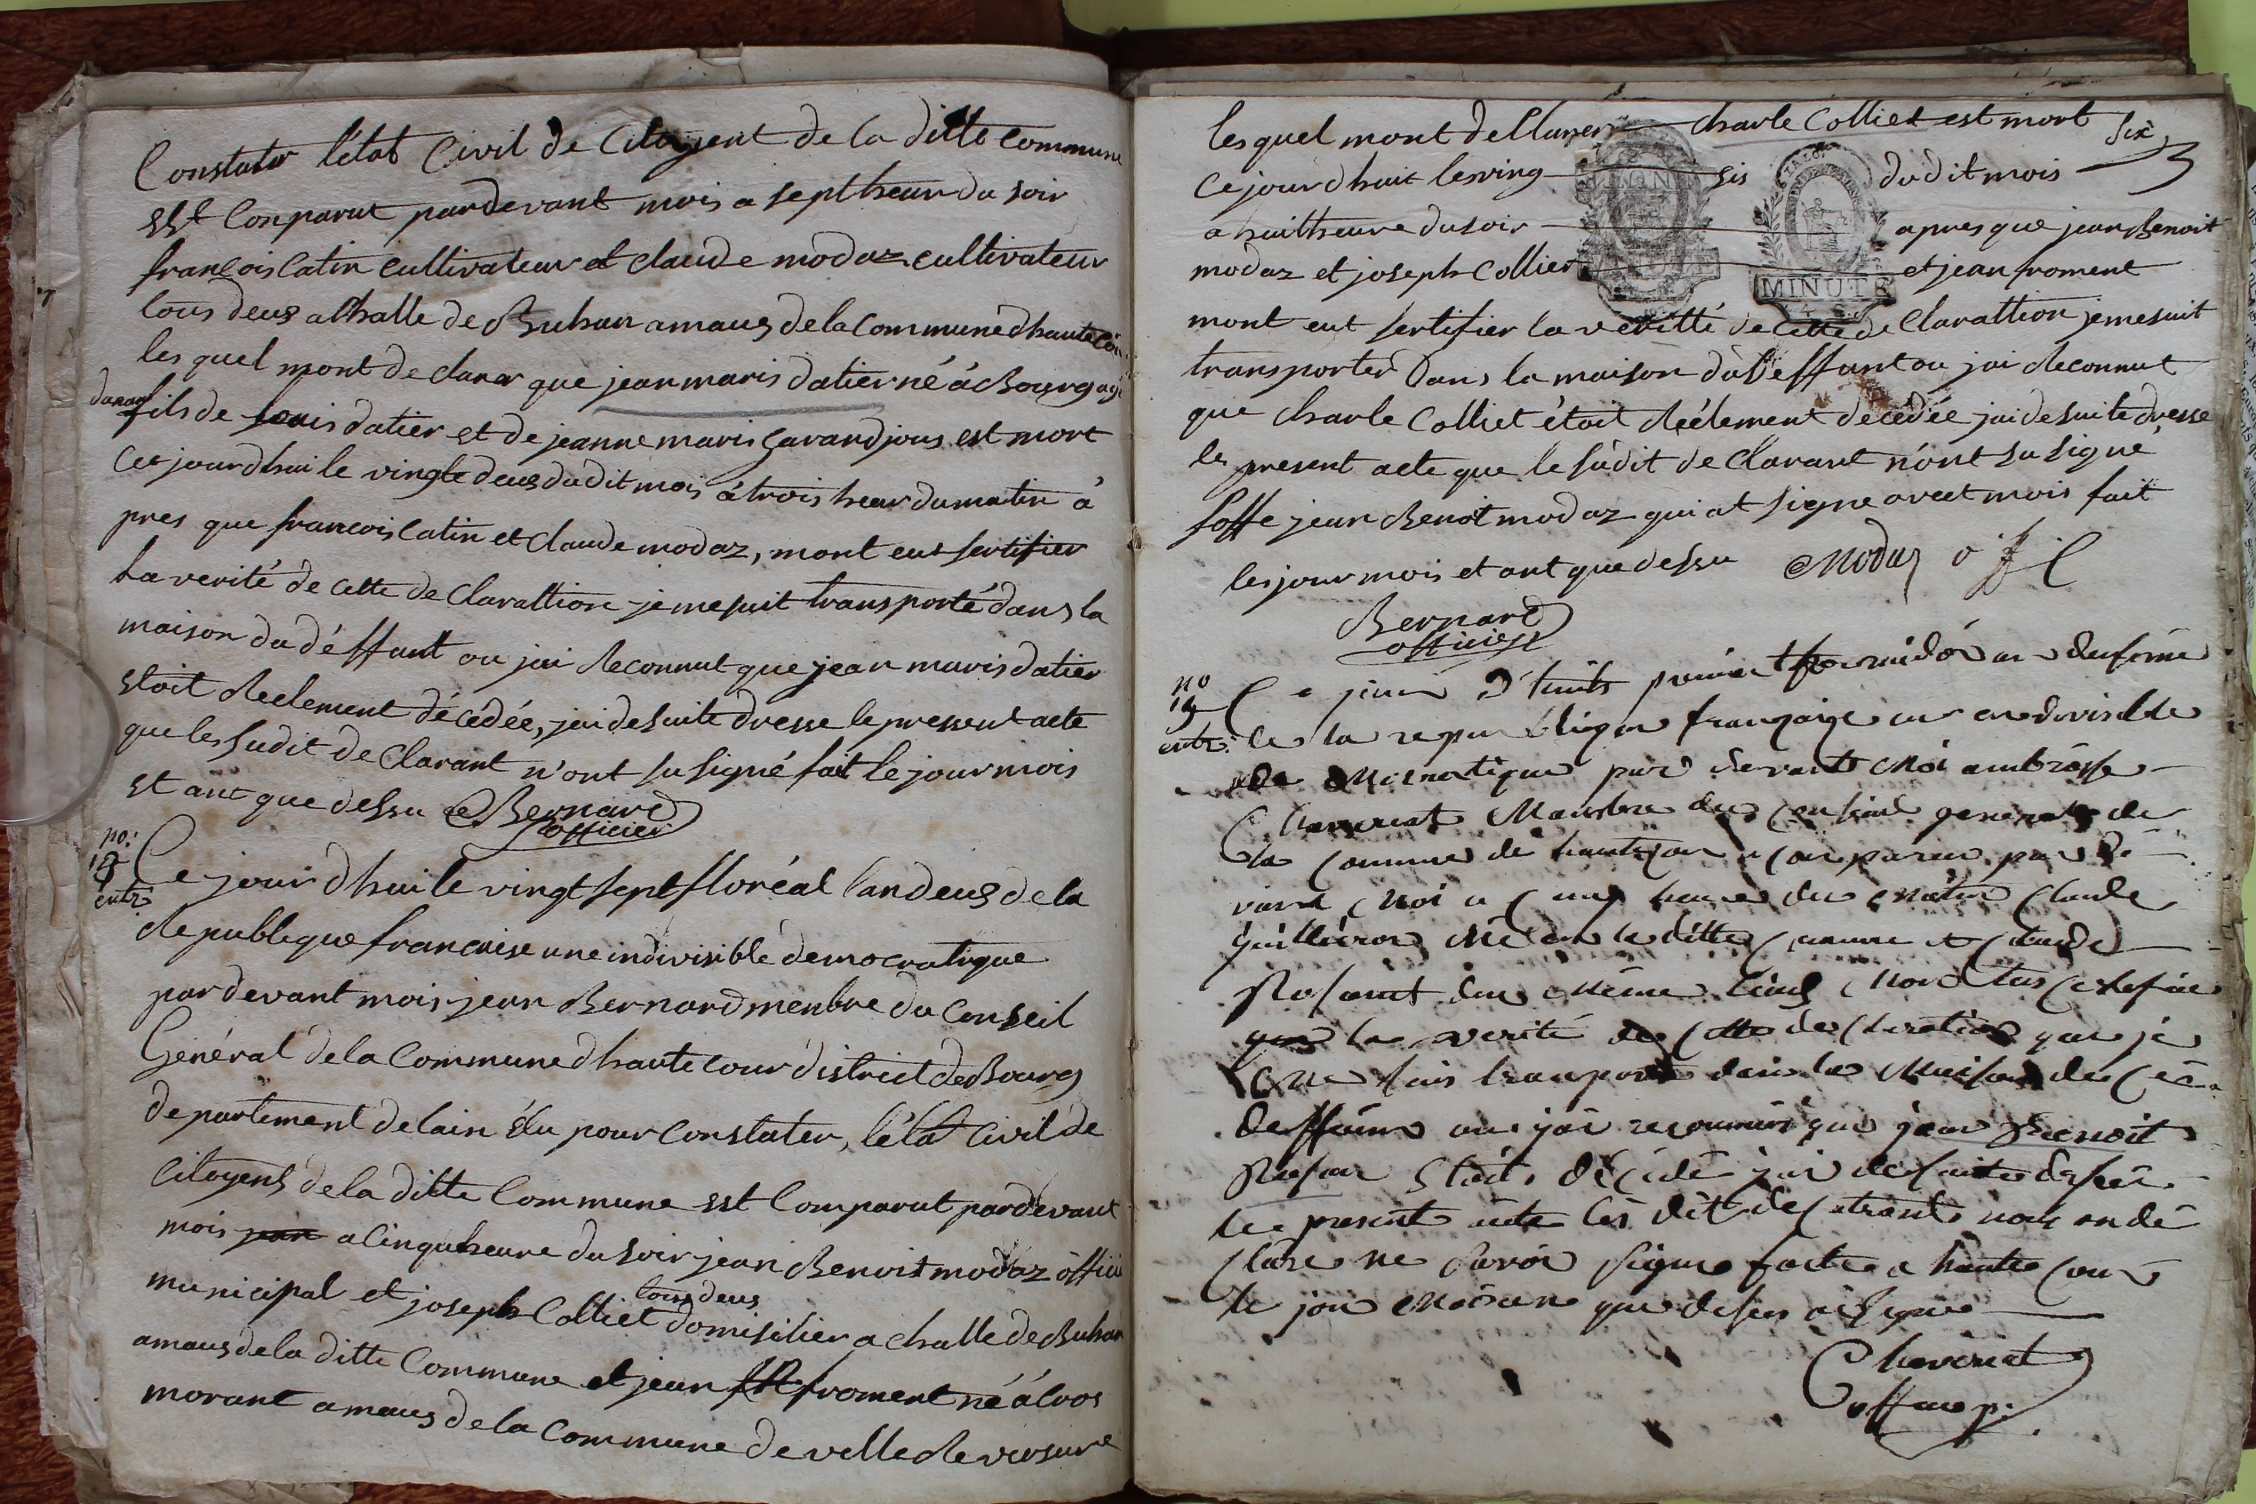 Constater l'état Civil de Citoyent de la ditte commune
est Conparut pardevant mois a sept heur du soir
francois Catin cultivateur et claude modaz cultivateur
tous deus a Challe de Buhan amaus de la Commune dhaute cour
les quel mont declarer que jean maris datier né à Bourg agé
dunan fils de Louis datier et de jeanne maris garandjous est mort
Cet jourdhui le vingte deus dudit mois à trois heur du matin à
pres que francois Catin et Claude modaz, mont eut sertifier
La verité de cette de Clarattion je me suit transporté dans la
maison du déffunt ou jai Reconnut que jean maris datier
Etoit Réelement décédée, jai de suite dresse le pressent acte
que les sudit de Clarant n'ont su signé fait le jour mois
et ant que dessu Bernard
officier
no:
18
entz
Ce jour dhui le vingt sept floréal lan deus de la
Republique francaise une indivisible démocratique
par devant mois jean Bernard menbre du Conseil
Général de la Commune dhaute cour district de Bourg
departement de lain élu pour constater, l'état Civil de
Citoyens de la ditte Commune est Comparut pardevant
mois jean a Cinqu heure du soir jean Benoit modaz offici
municipal et joseph Colliet tous deus domisilier a challe de Buhan
amaus de la ditte Commune et jean froment né à Cros
morant amaus de la Commune de ville Reversure
les quel mont de Clarer charle Colliet est mort six
Ce jour dhuit les ving sis du dit mois
a huit heure du soir apres que jean Benoit
modaz et joseph Collier et jean froment
MINUTE
mont eut sertifier la veritté de cette de Clarattion je me suit
transporter Dans la maison du deffunt ou jai Reconnut
que charle Colliet étoit Réelement decedée jai de suite dresse
le present acte que le sudit de Clarant n'ont su signé
soffe jean Benoit modaz qui at signe avect mois fait
les jour mois et ant que dessu Modaz
Bernard
officier
no
19
entz:
Ce jour d'huit premier
de la republique françoise une endivisible
par devant Moi ambroise
Chavériat Manbre du Conseial general de
la Commune de hautecour a comparu par de
vant Moi a cinq heure du matin Claude
Guillieron Né de la ditte Commune et Claude
du même lieu
que la verité de cette declaration que je
me suis transporté dans la Maison du
deffunt ou jai reconnu que jean Benoit
Etoit décidé jai de suite dessér
le present acte les dit declarant nous onde
clare ne savoir signe faite a haute cour
le jour Mois
Chaveriat